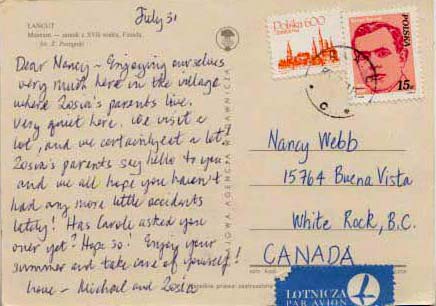 ŁAŃCUT
Muzeum — zamek z XVII wieku, Fasada.
fot. Z. Postępski
July 31
Dear Nancy — Enjoying ourselves
very much here in the village
where Zosia's parents live.
Very quiet here. We visit a
lot, and we certainly eat a lot!
Zosia's parents say hello to you
and we all hope you haven't
had any more little accidents
lately! Has Carole asked you
over yet? Hope so! Enjoy your
summer and take care of yourself!
Love — Michael and Zosia
KRAJOWA AGENCJA WYDAWNICZA
Polska 600
POLSKA
15
Nancy Webb
15764 Buena Vista
White Rock, B.C.
CANADA
LOTNICZA
PAR AVION